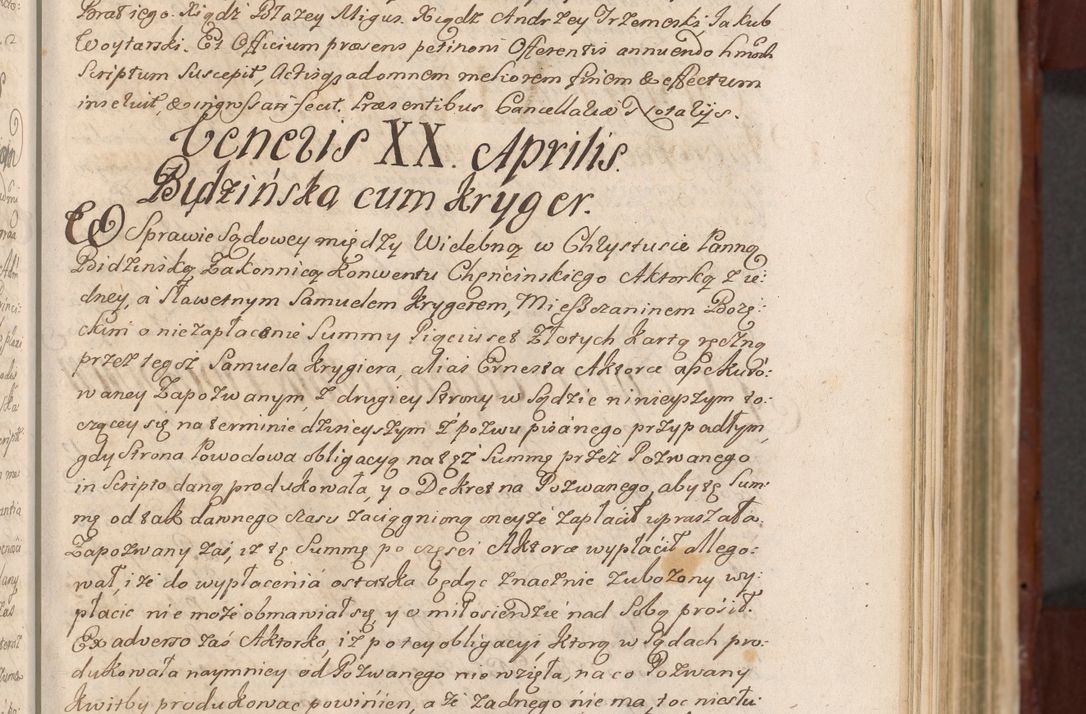 Bratiego. Xiądz Błazey Migus. Xiądz Andrzey Trzemeski, Jakub
Woytarski. Et Officium praesens petitioni Offerentis annuendo hmoi
Scriptum Suscepit, Actisq; ad omnem meliorem finem & effectum
inseruit, & ingrossari fecit. Praesentibus Cancellariae Notarijs.
Veneris XX. Aprilis.
Bydzińska cum Kryger.
W Sprawie Sądowey między Wielebną w Chrystusie Panną
Bidzinską Zakonnicą Konwentu Chęncinskiego Aktorką z ie:
dney, a Sławetnym Samuelem Krygerem, Mießszaninem Bozę:
ckim o niezapłacenie Summy Pięciuset Złotych Kartą ręczną
przez tegoż Samuela Krygiera, alias Ernesta Aktorce
waney Zapozwanym, z drugiey Strony w Sądzie ninieyszym to:
czącey się na terminie dzisieyszym z pozwu pisanego przypadłym,
gdy Strona Powodowa obligacyą na tęż Summę przez Pozwanego
in Scripto daną produkowała, y o Dekret na Pozwanego, aby tę Sum:
mę od tak dawnego czasu zaciągnioną oneyże zapłacił upraszała.
Zapozwany zaś, iż tę Summę po części Aktorce wypłacił allego:
wał, i że do wypłacenia ostatka będąc znacznie zubożony wy:
płacic nie może obmawiał się y o miłosierdzie nad Sobą prosił.
Ex adverso zaś Aktorka, iż po tey obligacyi ktorą w Sądach pro:
dukowała naymniey od Pozwanego nie wzięła, na co Pozwany
kwitby produkowac powinien, a że żadnego nie ma, toc niesłu: